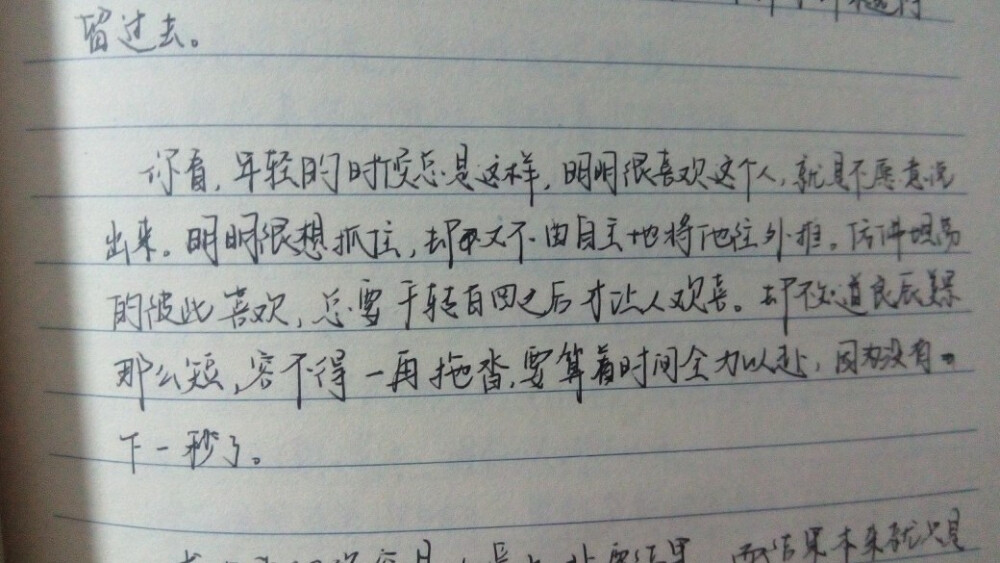 留过去。
你看，年轻的时候总是这样，明明很喜欢这个人，就是不愿意说
出来。明明很想抓住，却又不由自主地将他往外推。
的彼此喜欢，总要千转百回之后才让人欢喜。却不知道良辰美景
那么短，容不得一再拖沓，要算着时间全力以赴，因为没有
下一秒了。
结果本来就只是